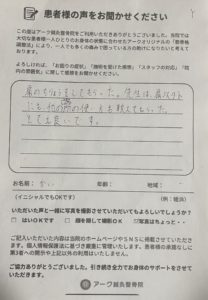 患者様の声をお聞かせください
この度はアーク鍼灸整骨院をご利用いただきありがとうございます。当院では
大切な患者様一人ひとりのお身体の状態に合わせたアークオリジナルの「
調整法」により、一人でも多くの痛みで困っている方の助けになりたいと考えて
おります。
よろしければ、「お困りの症状」「施術を受けた感想」「スタッフの対応」「院
内の雰囲気」に関して感想をお聞かせください。
肩のちりょうをしてもらった。先生は、肩バクト
にも、他の所の使い方も教えてもらった。
とても良いです。
お名前：かい
年齢：
地域：
（イニシャルでもOKです）
（例：姫路）
いただいた声と一緒に写真を撮影させていただいてもよろしいでしょうか？
□ はいOKです
□ 顔を隠して撮影OK
☑写真はちょっと・・・
ご記入いただいた内容は当院のホームページやSNSに掲載させていただき
ます。個人情報保護法に基づき厳重に管理いたします。患者様の承諾なしに
第3者への開示や上記以外の利用はいたしません。
ご協力ありがとうございました。引き続き全力でお身体のサポートをさせて
いただきます。
アーク鍼灸整骨院